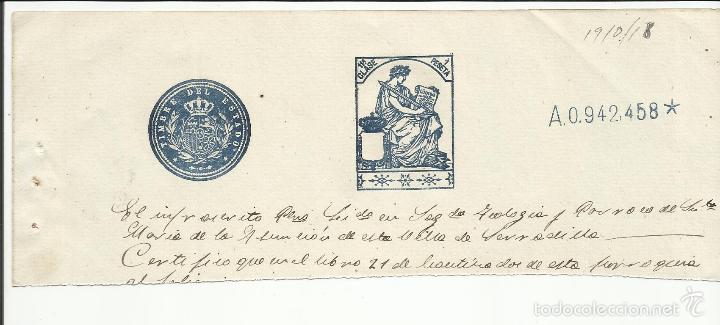 1910/18
TIMBRE DEL ESTADO
11ª CLASE
1 PESETA
A.0.942.458*
El infrascrito en Teología y Párroco de Sta
Maria de la Asunción de esta Villa de Serradilla
Certifico que en el libro 21 de bautizados de esta parroquia
al folio
todocoleccion